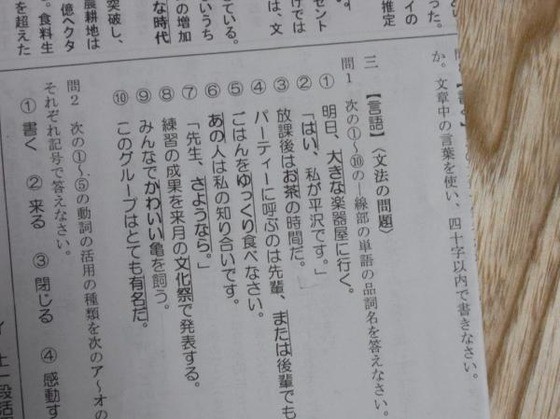 った。
イの
推定
セント
けでは
は、文
ている。
いうち
の増加
な時代
突破し、
農耕地は
億ヘクタ
。食料生
を超えた
か。文章中の言葉を使い、四十字以内で書きなさい。
三 【言語】〈文法の問題〉
問1 次の①～⑩の―線部の単語の品詞名を答えなさい。
① 明日、大きな楽器屋に行く。
② 「はい、私が平沢です。」
③ 放課後はお茶の時間だ。
④ パーティーに呼ぶのは先輩、または後輩でも
⑤ ごはんをゆっくり食べなさい。
⑥ あの人は私の知り合いです。
⑦ 「先生、さようなら。」
⑧ 練習の成果を来月の文化祭で発表する。
⑨ みんなでかわいい亀を飼う。
⑩ このグループはとても有名だ。
問2 次の①～⑤の動詞の活用の種類を次のア～オの
それぞれ記号で答えなさい。
① 書く ② 来る ③ 閉じる ④ 感動す
イ 上一段活